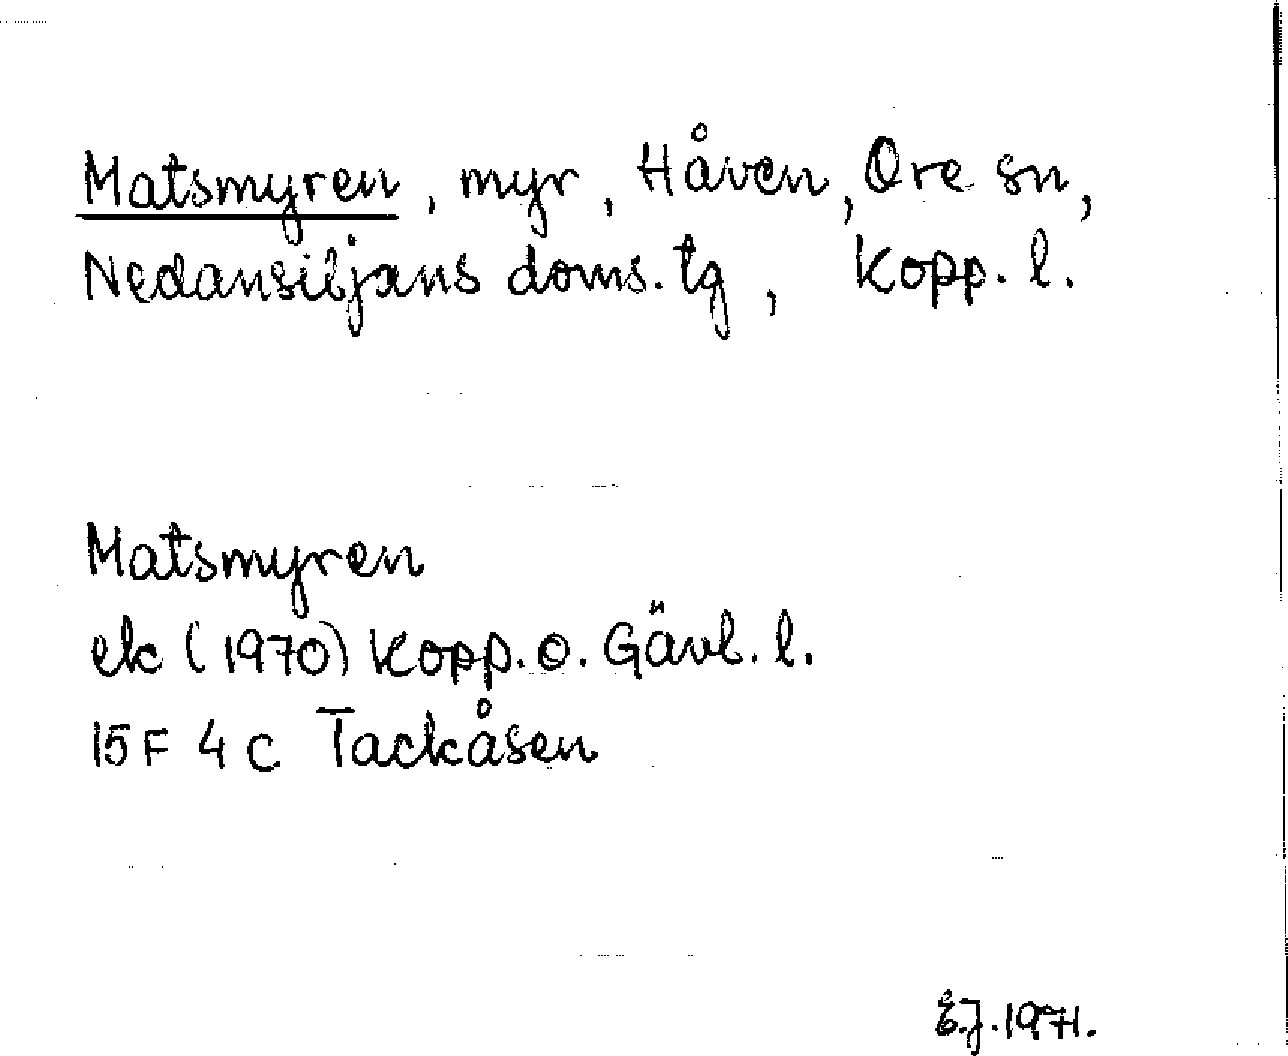 Matsmyren, myr, Håven, Ore sn,
Nedansiljans doms. tg, Kopp. l.
Matsmyren
ek (1970) Kopp. o. Gävl. l.
15F 4c Tackåsen
E.J. 1971.